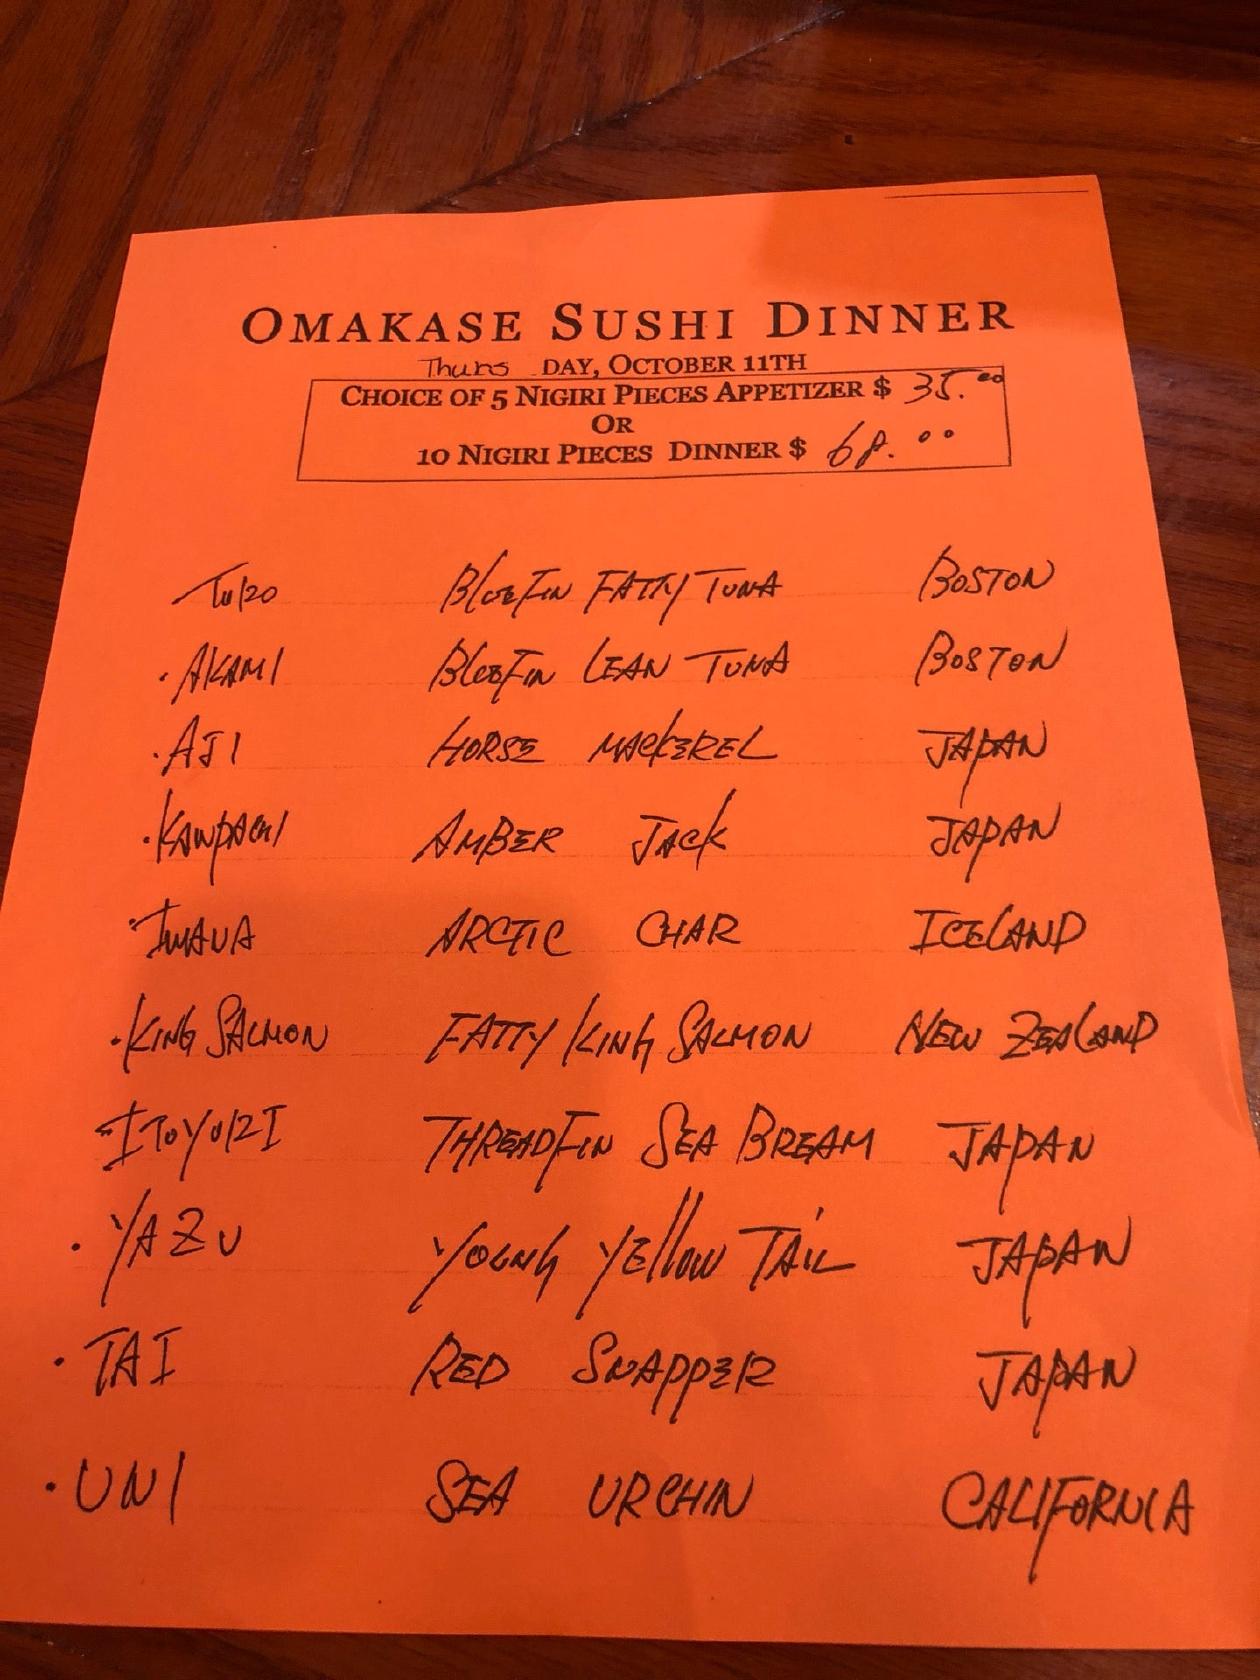 OMAKASE SUSHI DINNER
Thurs DAY, OCTOBER 11TH
CHOICE OF 5 NIGIRI PIECES APPETIZER $ 35.00
OR
10 NIGIRI PIECES DINNER $ 68.00
TORO BLUEFIN FATTY TUNA BOSTON
· AKAMI BLUEFIN LEAN TUNA BOSTON
· AJI HORSE MACKEREL JAPAN
· KANPACHI AMBER JACK JAPAN
· IWAUA ARCTIC CHAR ICELAND
· KING SALMON FATTY KING SALMON NEW ZEALAND
· ITOYORI THREADFIN SEA BREAM JAPAN
· YAZU YOUNG YELLOW TAIL JAPAN
· TAI RED SNAPPER JAPAN
· UNI SEA URCHIN CALIFORNIA